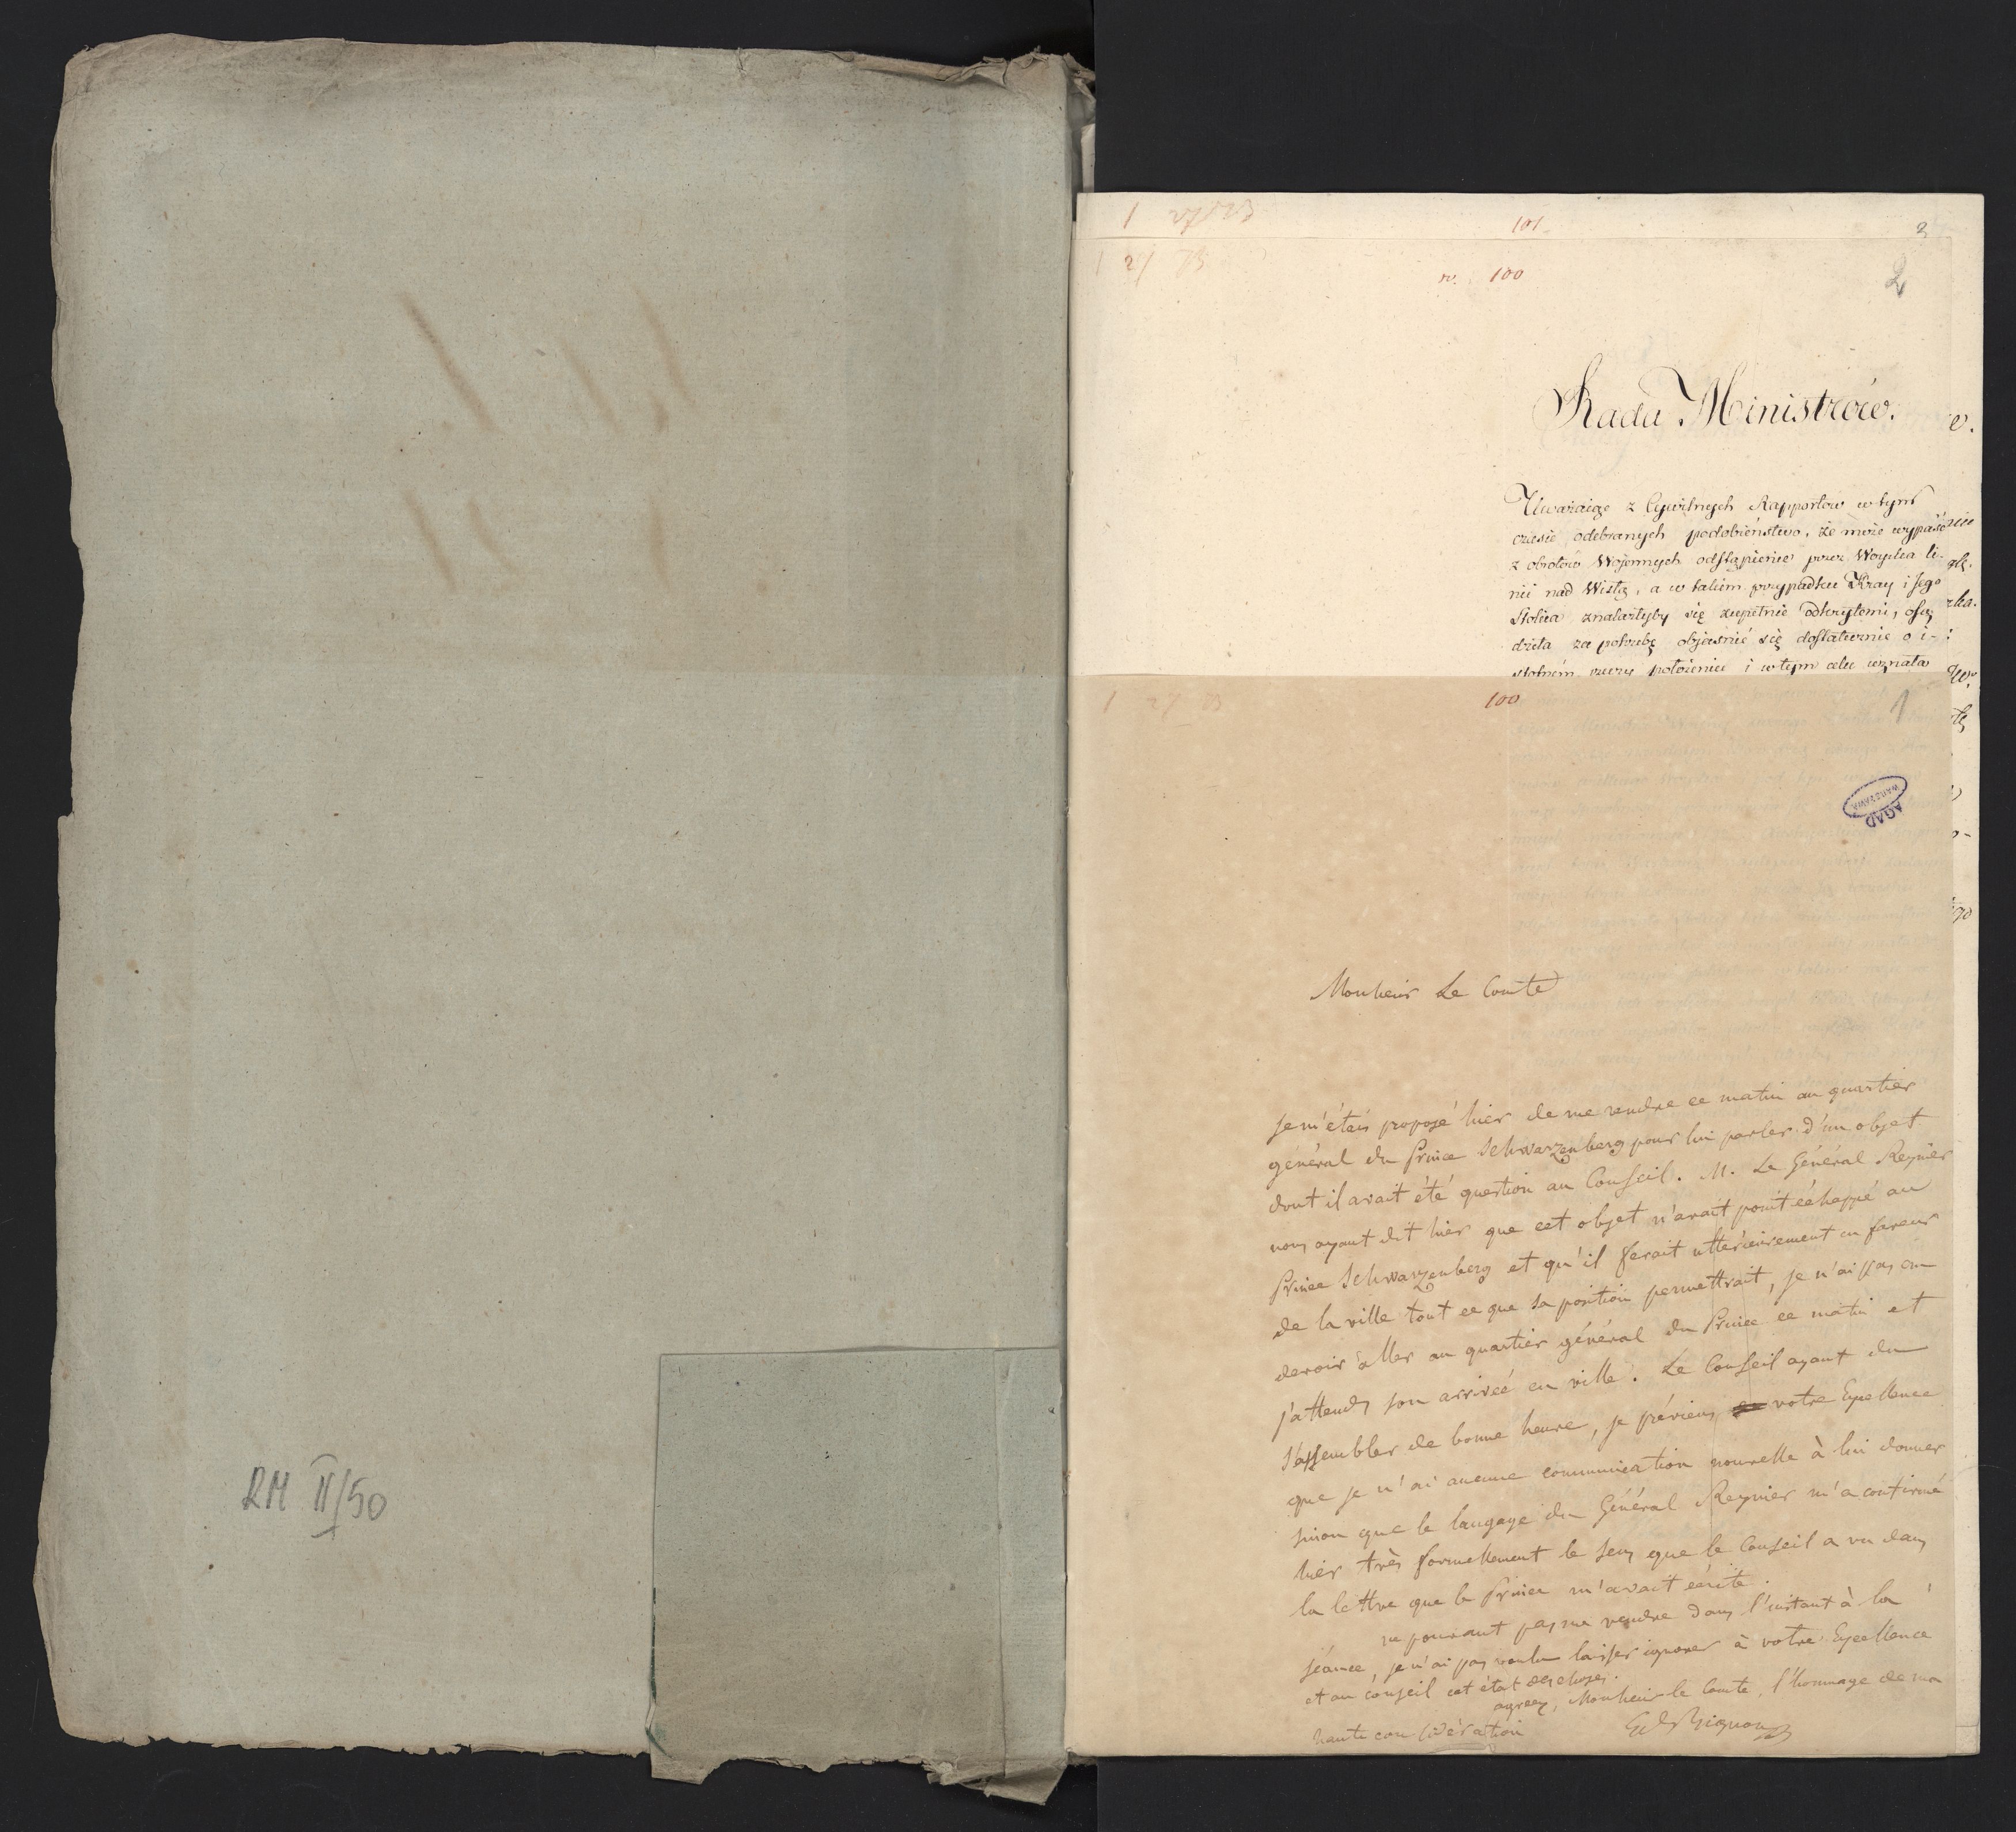 RM II/50
1
101
2
1 27
w. 100
2
Rada Ministrów.
Uważaiąc z Cywilnych Rapportów w tym
czasie odebranych podobieństwo, że może wypaść
z obrotów Wojennych odstąpienie przez Woyska li-
nii nad Wisłą, a w takim przypadku Kray i Jego
Stolica znalazłyby się zupełnie odkrytemi, osą
dziła za potrzebę objaśnić się dostatecznie o i-
stotnem rzeczy położeniu i w tym celu uznała
1
100
1
AGAD
WARSZAWA
Monsieur Le Comte
Je m'étais proposé hier de me rendre ce matin au quartier
général du Prince Schwarzenberg pour lui parler d'un objet
dont il avait été question au Conseil. M. Le Général Reynier
nous ayant dit hier que cet objet n'avait point échappé au
Prince Schwarzenberg et qu'il ferait ultérieurement en faveur
de la ville tout ce que sa position permettrait, je n'ai pas cru
devoir aller au quartier général du Prince ce matin et
j'attends son arriveé en ville. Le Conseil ayant du
s'assembler de bonne heure, je préviens votre Excellence
que je n'ai aucune communication nouvelle à lui donner
sinon que le langage du Général Reynier m'a confirmé
hier très formellement le sens que le Conseil a vu dans
la lettre que le Prince m'avait écrite.
ne pouvant pas me rendre dans l'instant à la
séance, je n'ai pas voulu laisser ignorer à votre Excellence
et au conseil cet état des choses.
agréez, Monsieur le Comte, l'hommage de ma
haute considération
Ed Bignon